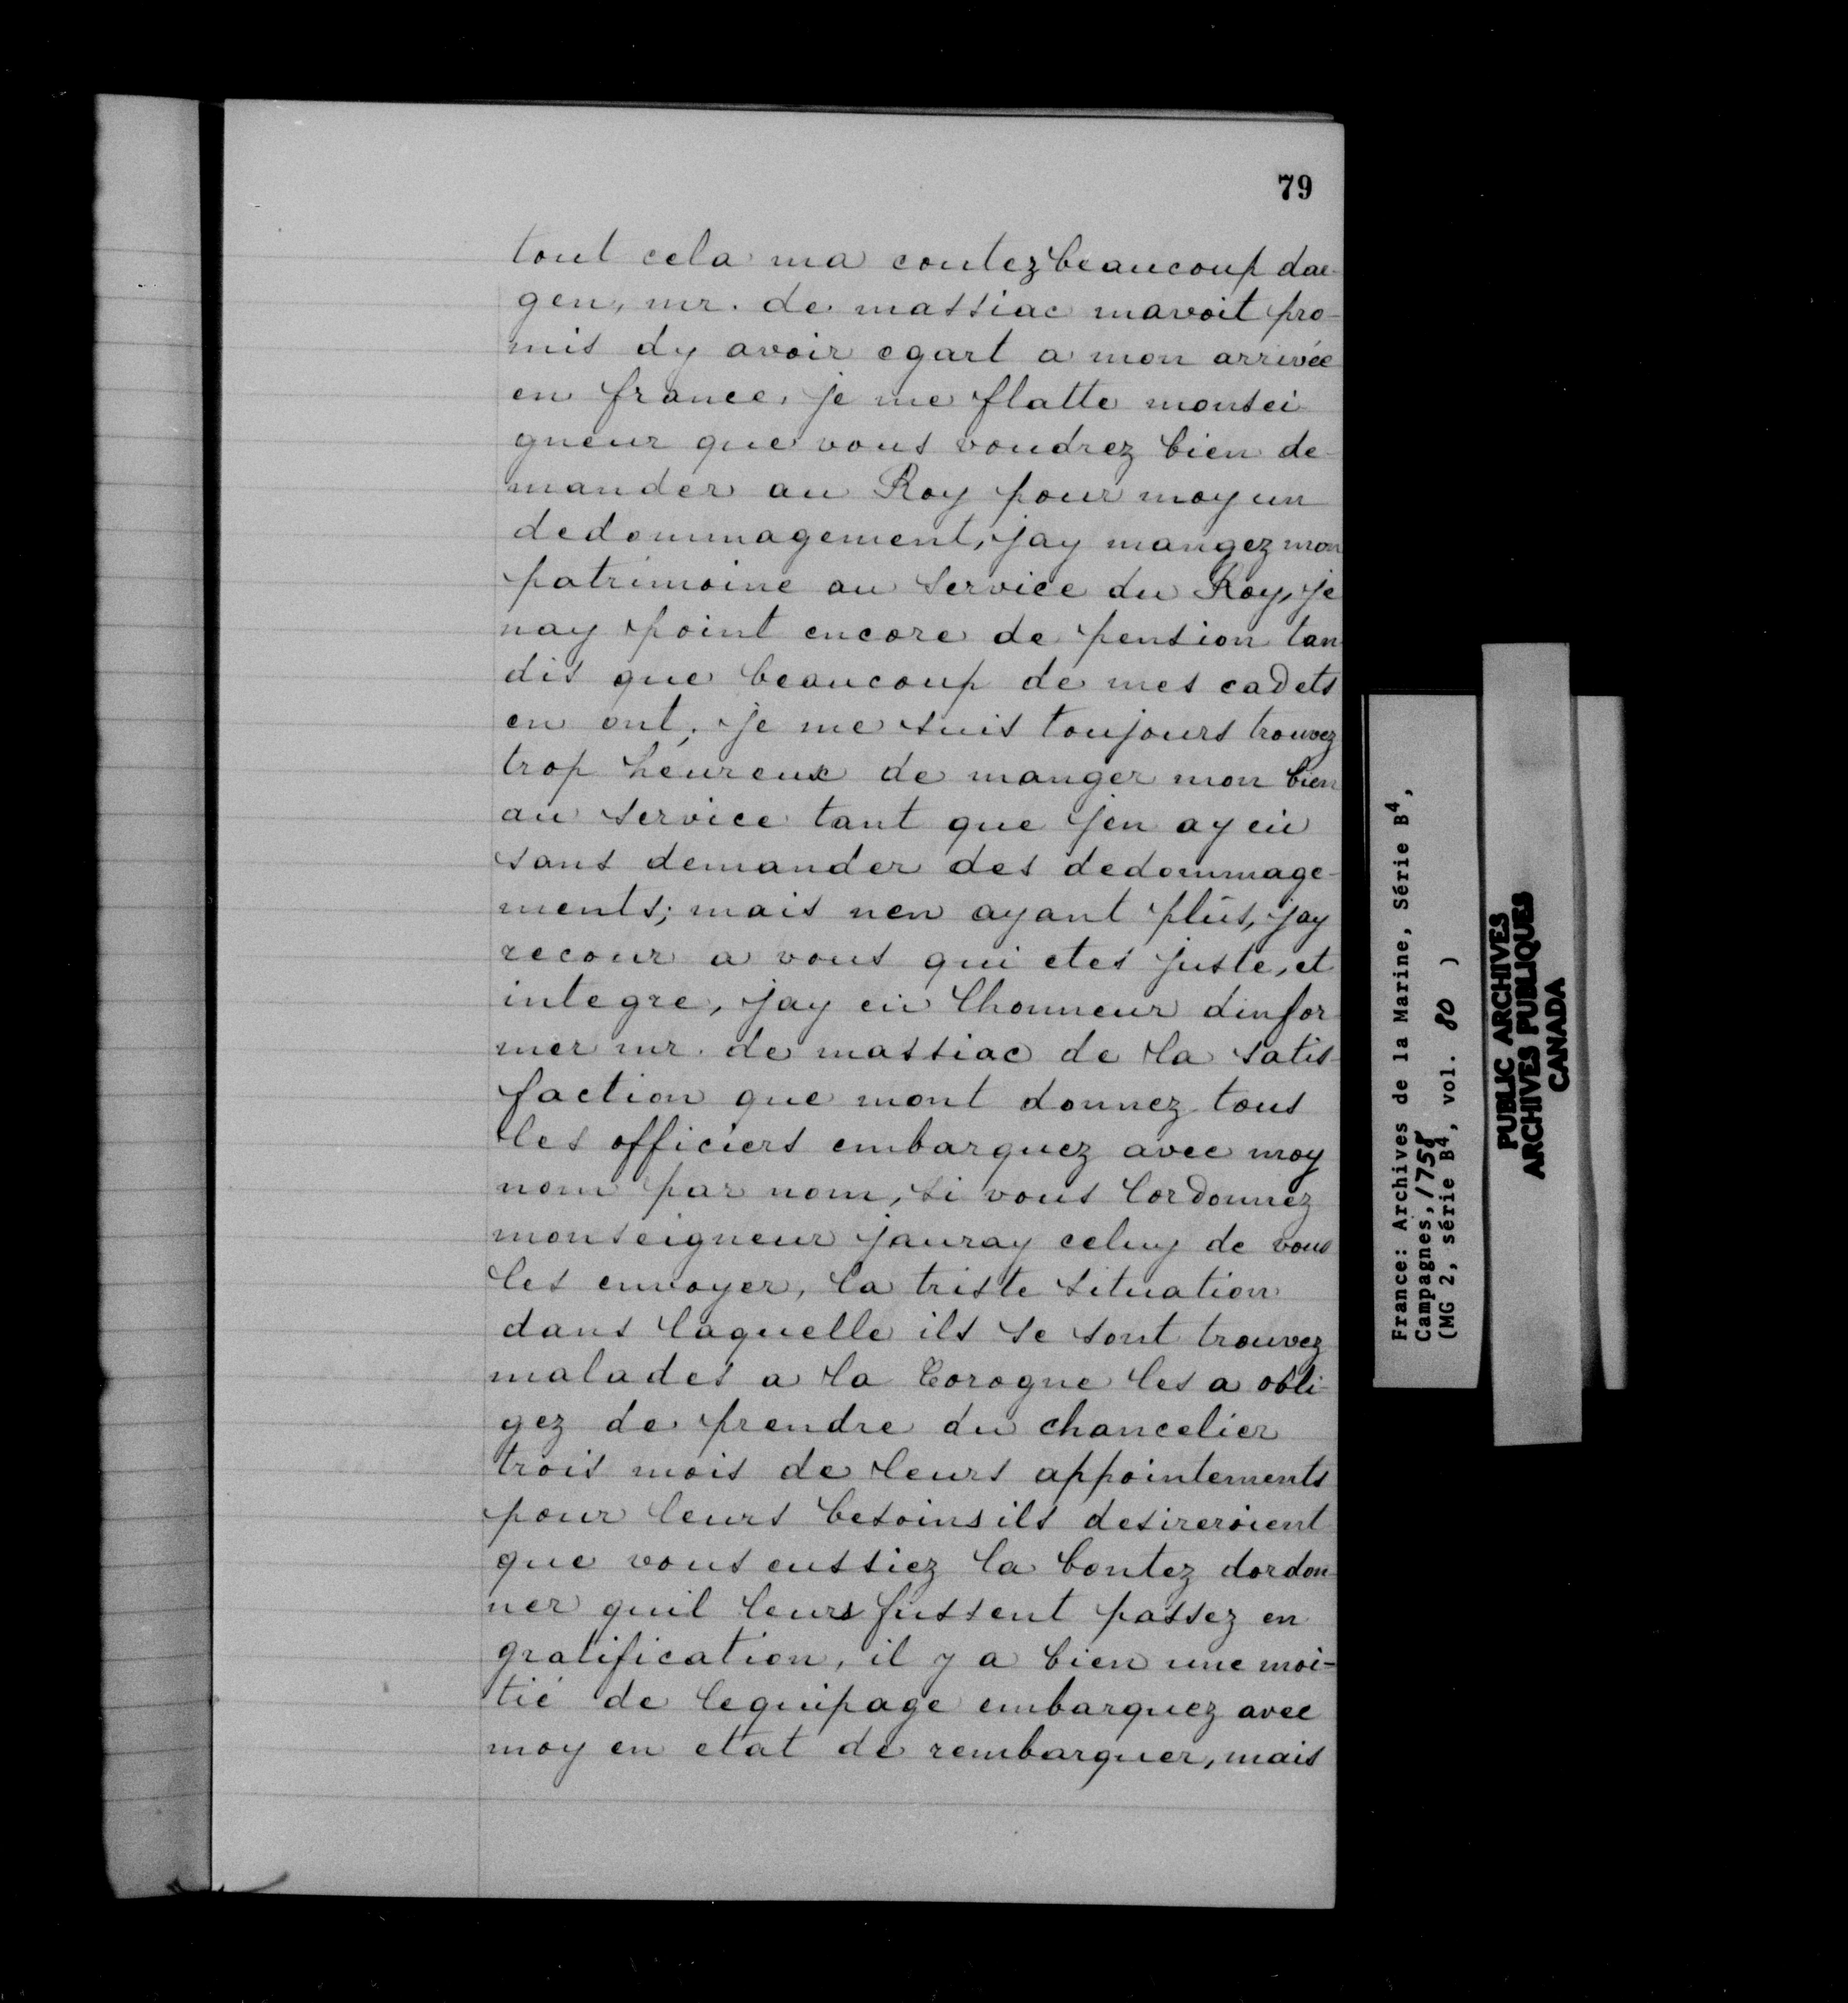 79
tout cela ma coutez beaucoup dar-
gen, mr. de massiac mavoit pro-
mis dy avoir egart a mon arrivée
en france, je me flatte monsei
gneur que vous voudrez bien de-
mander au Roy pour moy un
dedommagement, jay mangez mon
patrimoine au service du Roy, je
nay point encore de pension tan
dis que beaucoup de mes cadets
en ont, je me suis toujours trouvez
trop heureux de manger mon bien
au service tant que jen ay eü
sans demander des dedommage-
ments; mais nen ayant plus, jay
recour a vous qui etes juste, et
integre, jay eü lhonneur dinfor
mer mr. de massiac de la satis-
faction que mont donnez tous
les officiers embarquez avec moy
nom par nom, si vous lordonnez
monseigneur jauray celuy de vous
les envoyer, la triste situation
dans laquelle ils se sont trouvez
malades a la Corogne les a obli-
gez de prendre du chancelier
trois mois de leurs appointements
pour leurs besoins ils desireroient
que vous eussiez la bontez dordon
ner quil leurs fussent passez en
gratification, il y a bien une moi-
tié de lequipage embarquez avec
moy en etat de rembarquer, mais
France: Archives de la Marine, Série B4,
Campagnes, 1758
(MG 2, série B4, vol. 80 )
PUBLIC ARCHIVES
ARCHIVES PUBLIQUES
CANADA